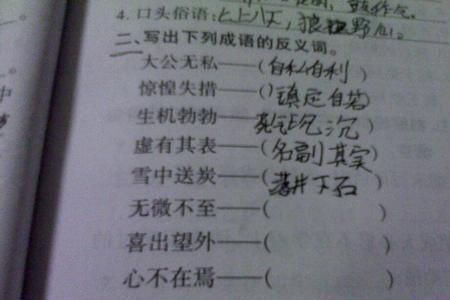 4. 口头俗语:七上八下,狼
二、写出下列成语的反义词。
大公无私——(自私自利)
惊惶失措——(镇定自若)
生机勃勃——死气沉沉)
虚有其表——(名副其实)
雪中送炭——(落井下石)
无微不至——( )
喜出望外——( )
心不在焉——( )
中